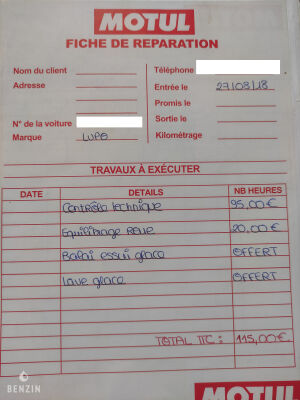 MOTUL
FICHE DE REPARATION
Nom du client
Téléphone
Adresse
Entrée le 27/08/18
Promis le
N° de la voiture
Sortie le
Marque LUPO
Kilométrage
TRAVAUX À EXÉCUTER
DATE DETAILS NB HEURES
Contrôle technique 95,00€
Equilibrage Roue 20,00€
Balai essui glace OFFERT
Lave glace OFFERT
TOTAL TTC: 115,00€
MOTUL
BENZIN